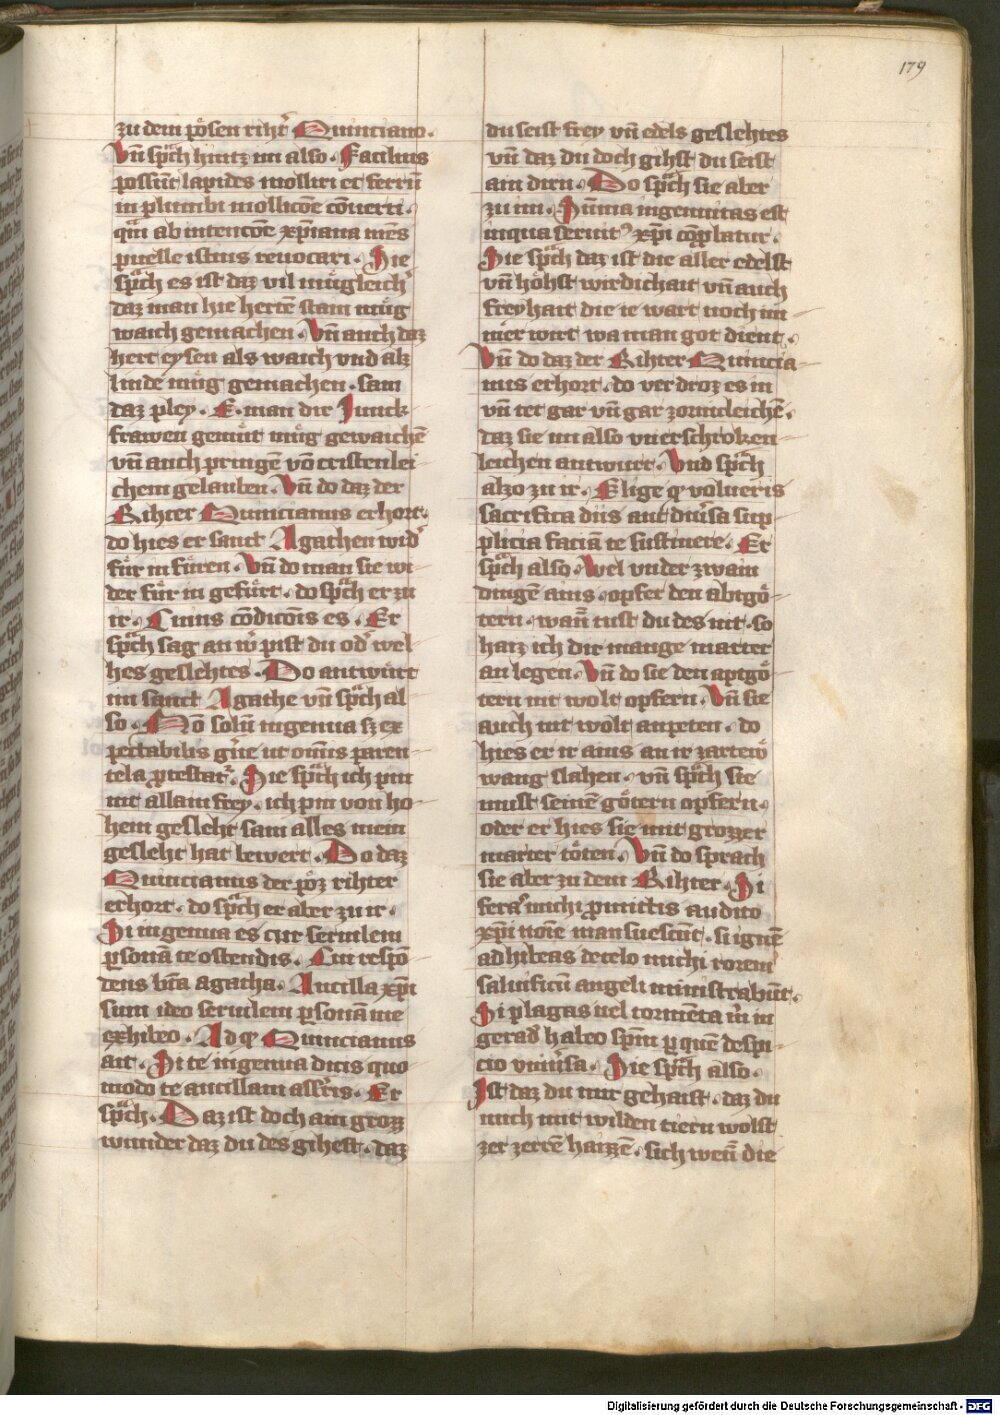 179
zu dem pösen riht᷑ Quinciano.
Vn̄ sp̄ch hintz im also. Facilius
possūt lapides molliri et ferrū
in plumbi mollicōe cōuerti.
qm̄ ab intencōe xp̄iana mēs
puelle istius reuocari. Hie
sp̄ch es ist daz vil mügleich
daz man hie herten stain müg
waich gemachen. Vn̄ auch daz
hert eysen als waich vnd als
linde müg gemachen. sam
daz pley. E. man dir Junck
frawen gemüt müg gewaichē
vn̄ auch pringē vō cristenlei
chem gelauben. Vn̄ do daz der
Rihter Quincianus erhort.
do hies er sanct Agathen wid᷑
für in füren. Vn̄ do man sie wi
der für in gefürt. do sp̄ch er zu
ir. Cuius cōdicōis es. Er
sp̄ch sag an w᷑ pist du od᷑ wel
hes geslehtes. Do antwurt
im sanct Agathe vn̄ sp̄ch al
so. Nō solū ingenua sz ex
pectabilis gn̄e ut om̄is paren
tela p̄testat᷑. Sie sp̄ch ich pin
nit allain frey. ich pin von ho
hem gesleht sam alles mein
gesleht hat bewert. Do daz
Quincianus der pöz rihter
erhort. do sp̄ch er aber zu ir.
Si ingenua es cur seruilem
p̄sonā te ostendis. Cui respō
dens bt̄a agatha. Ancilla xp̄i
sum ideo seruilem p̄sonā me
exhibeo. Ad q̄ Quincianus
ait. Si te ingenua dicis quo
modo te ancillam ass᷑is. Er
sp̄ch. Daz ist doch ain grozz
wunder daz du des gihest. daz
du seist frey vn̄ edels geslehtes
vn̄ daz du doch gihst du seist
ain dirn. Do sp̄ch sie aber
zu im. Sūma ingenuitas est
in qua seruit᷒ xp̄i cōp̄batur.
Sie sp̄ch daz ist die aller edelst
vn̄ höhst wirdichait vn̄ auch
freyhait die ie wart noch im
mer wirt wa man got dient.
Vn̄ do daz der Rihter Quincia
nus erhort. do verdroz es in
vn̄ tet gar vn̄ gar zornicleichē.
daz sie im also vnerschroken
leichen antwurt. Vnd sp̄ch
alzo zu ir. Elige q̄ volueris
sacrifica diis aut diu᷑sa sup
plicia faciā te sustinere. Er
sp̄ch also. Wel vnder zwain
dingē ains. opfer den abtgö
tern. wan̄ tust du des nit. so
haiz ich dir mange marter
an legen. Vn̄ do sie den aptgö
tern nit wolt opfern. Vn̄ sie
auch nit wolt anpeten. do
hies er ir ains an ir zartew
wang slahen. vn̄ sp̄ch sie
must seinē götern opfern.
oder er hies sie mit grozzer
marter töten. Vn̄ do sprach
sie aber zu dem Rihter. Si
feras michi p̄mittis audito
xp̄i noīe mansuescūt. si ignē
adhibeas de celo michi rorem
saluificū angeli ministrabūt.
Si plagas uel tormēta m̄ in
geras habeo sp̄m p̄ quē despi
cio vniu᷑sa. Sie sp̄ch also.
Ist daz du mir gehaist. daz du
mich mit wilden tiern wolst
zer zerrē haizzē. sich wen̄ die
Digitalisierung gefördert durch die Deutsche Forschungsgemeinschaft - DFG